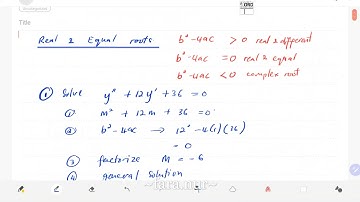 Title
Real & Equal roots
b² - 4ac > 0 real & different
b² - 4ac = 0 real & equal
b² - 4ac < 0 complex root
① Solve y" + 12y' + 36 = 0
① m² + 12m + 36 = 0
② b² - 4ac → 12² - 4(1)(36)
= 0
③ factorize M = -6
④ general solution